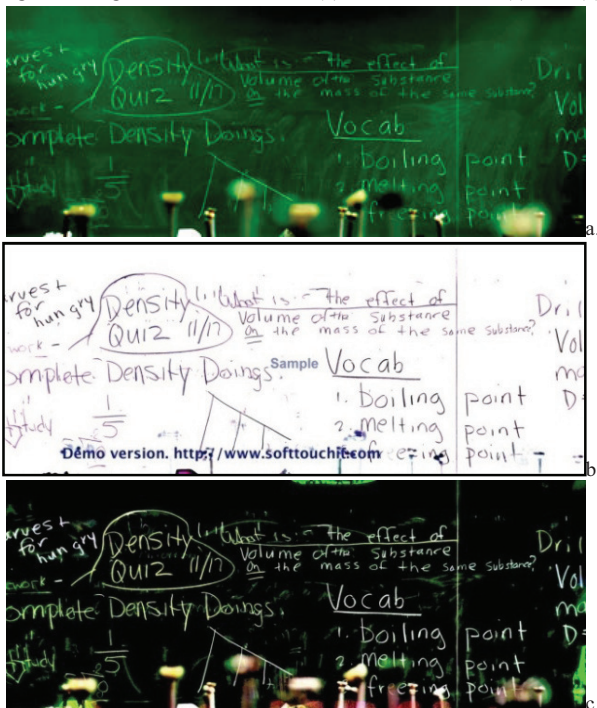 arvest
for
hungry
Density
Quiz 11/17
What is the effect of
Volume of the Substance
on the mass of the same substance?
work -
omplete Density Doings.
Vocab
1. boiling point
2. melting point
freezing point
study
1
5
Dri
Vol
ma
D=
a.
arvest
for
hungry
Density
Quiz 11/17
What is the effect of
Volume of the Substance
on the mass of the same substance?
work -
omplete Density Doings.
Sample
Vocab
1. boiling point
2. melting point
freezing point
study
1
5
Dri
Vol
ma
D
Demo version. http://www.softtouchit.com
b
arvest
for
hungry
Density
Quiz 11/17
What is the effect of
Volume of the Substance
on the mass of the same substance?
work -
omplete Density Doings.
Vocab
1. boiling point
2. melting point
freezing point
study
1
5
Dri
Vol
ma
D=
c